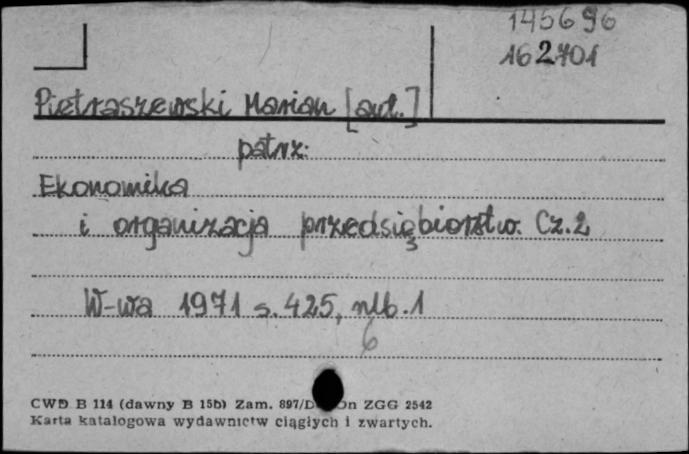 145696
162701
Pietraszewski Marian [aut.]
patrz:
Ekonomika
i organizacja przedsiębiorstw. Cz. 2
W-wa 1971 s. 425, nlb. 1
6
CWD B 114 (dawny B 15b) Zam. 897/D on ZGG 2542
Karta katalogowa wydawnictw ciągłych i zwartych.